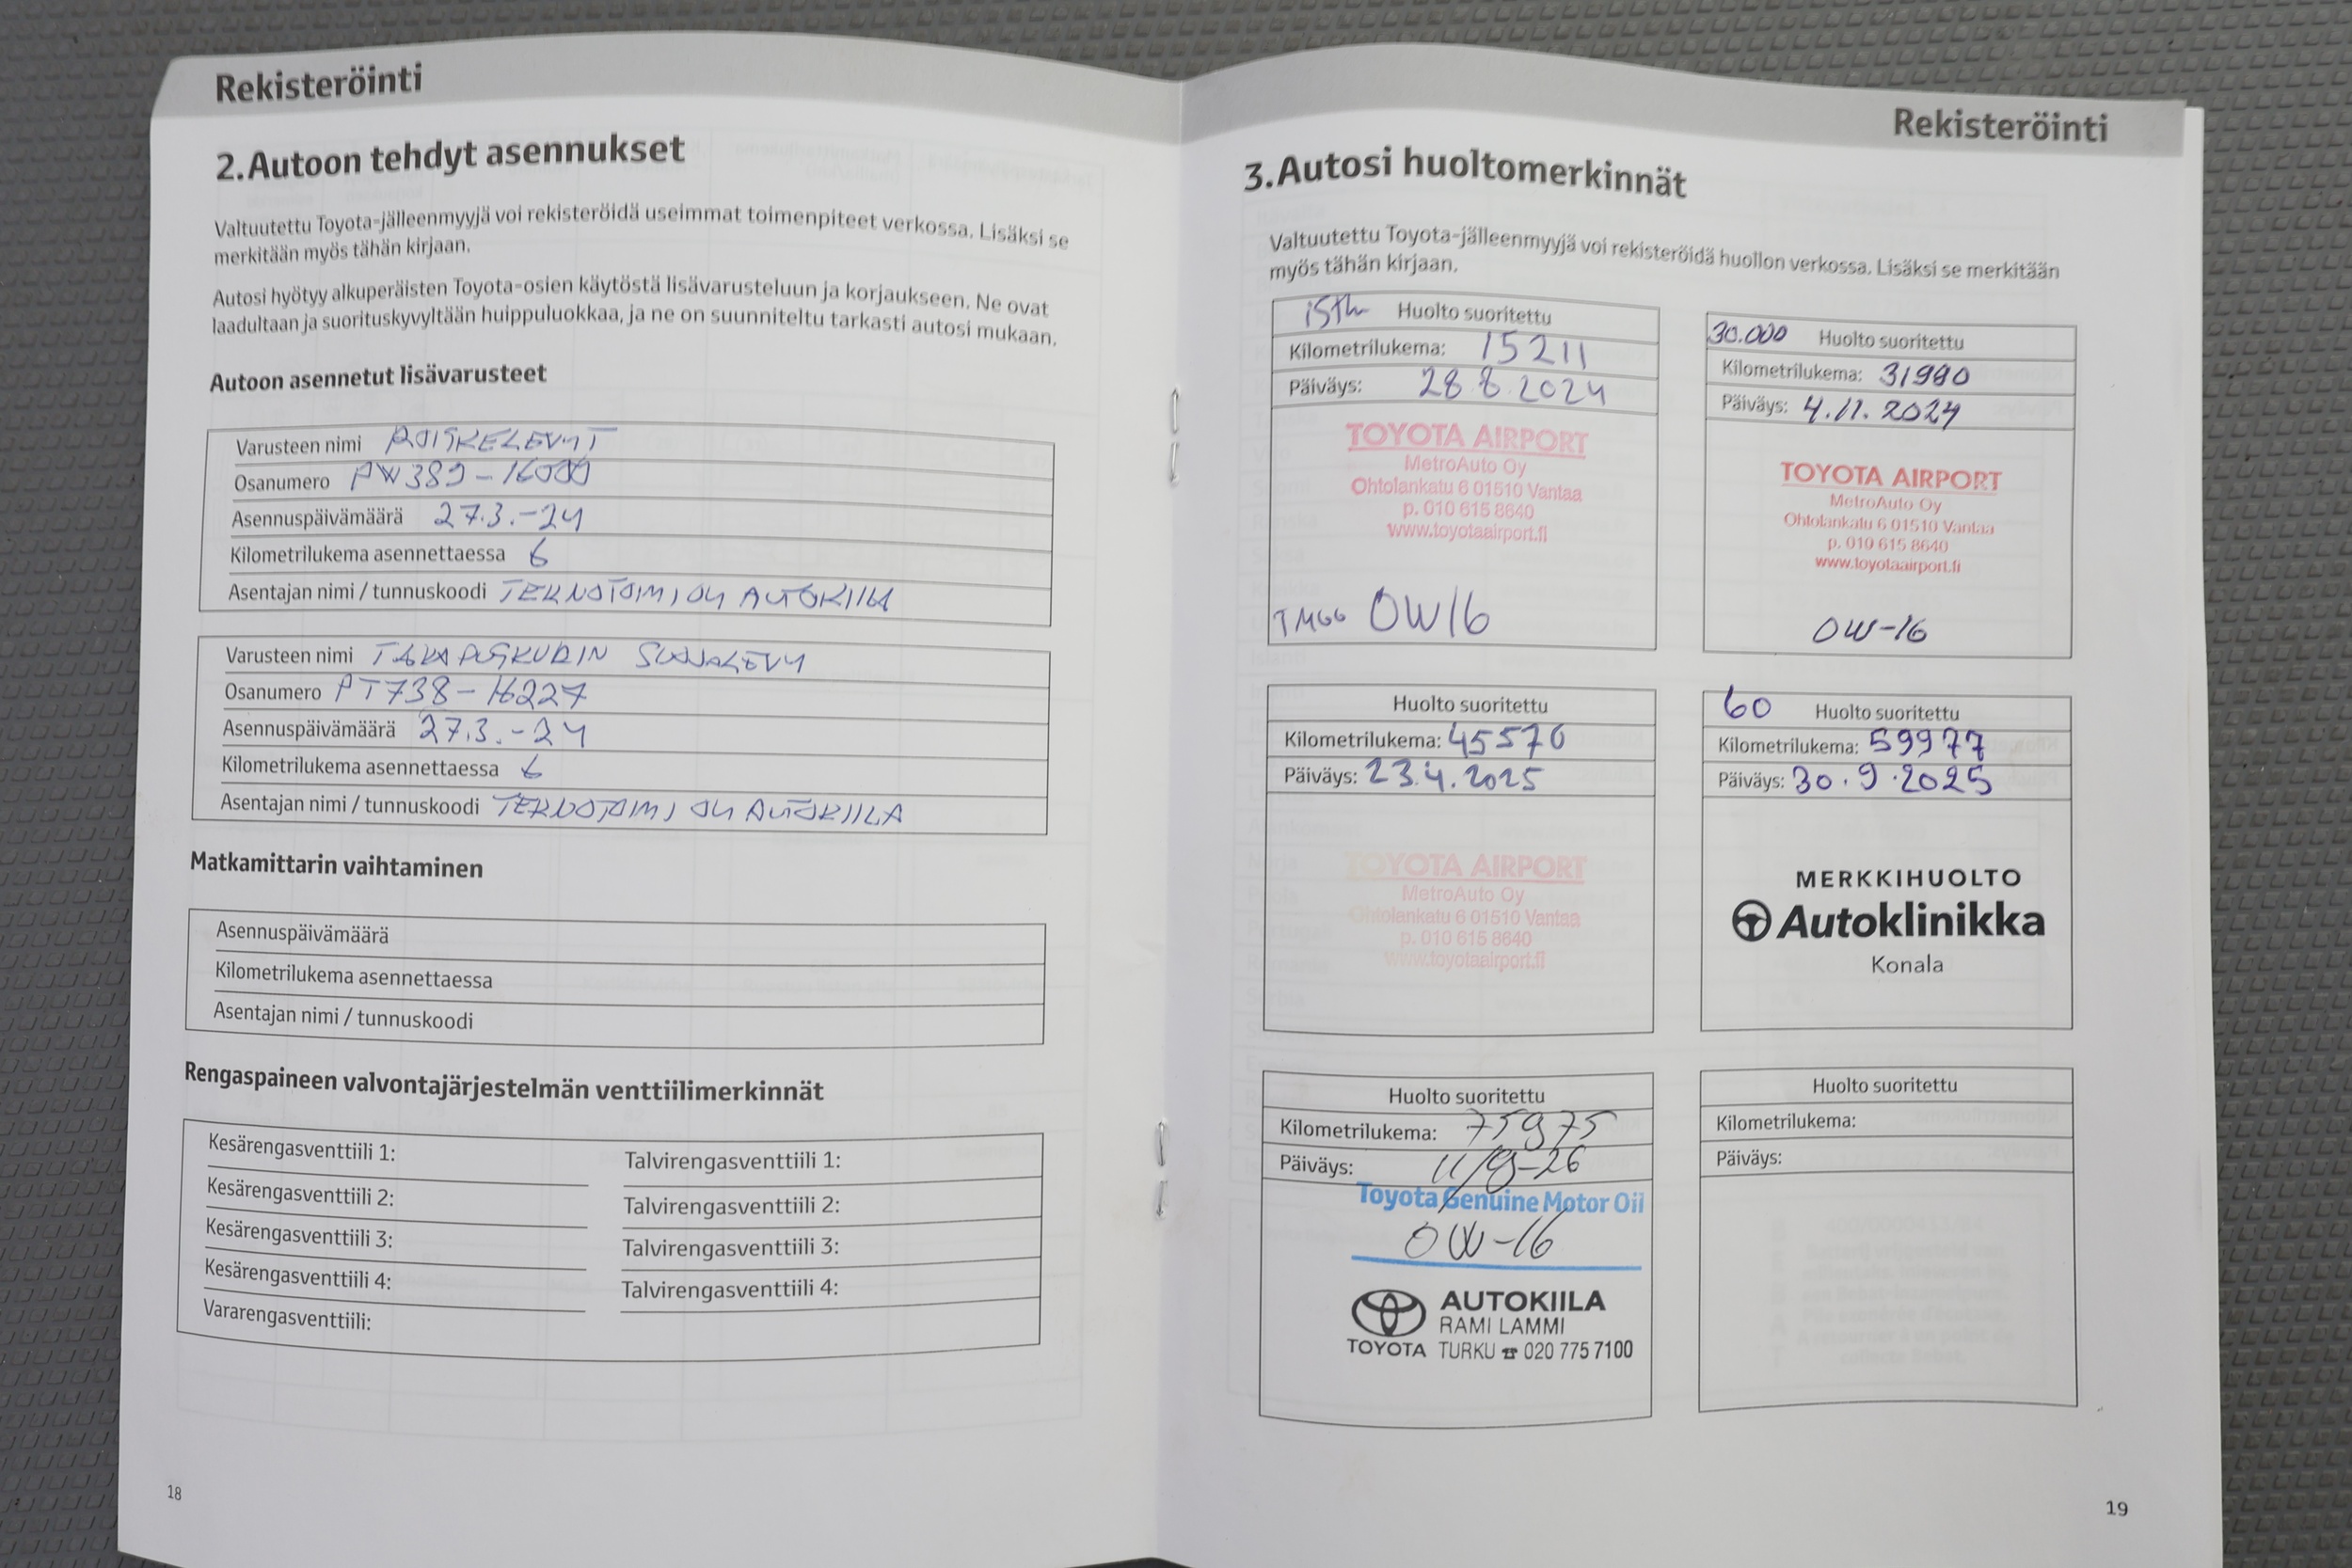 Rekisteröinti
2.Autoon tehdyt asennukset
Valtuutettu Toyota-jälleenmyyjä voi rekisteröidä useimmat toimenpiteet verkossa. Lisäksi se
merkitään myös tähän kirjaan.
Autosi hyötyy alkuperäisten Toyota-osien käytöstä lisävarusteluun ja korjaukseen. Ne ovat
laadultaan ja suorituskyvyltään huippuluokkaa, ja ne on suunniteltu tarkasti autosi mukaan.
Autoon asennetut lisävarusteet
Varusteen nimi ROISKELEVYT
Osanumero PW389-16000
Asennuspäivämäärä 27.3.-24
Kilometrilukema asennettaessa 6
Asentajan nimi / tunnuskoodi TEKNOTOIMI OY AUTOKIILA
Varusteen nimi TAKAPUSKURIN SUOJALEVY
Osanumero PT738-16227
Asennuspäivämäärä 27.3.-24
Kilometrilukema asennettaessa 6
Asentajan nimi / tunnuskoodi TEKNOTOIMI OY AUTOKIILA
Matkamittarin vaihtaminen
Asennuspäivämäärä
Kilometrilukema asennettaessa
Asentajan nimi / tunnuskoodi
Rengaspaineen valvontajärjestelmän venttiilimerkinnät
Kesärengasventtiili 1: Talvirengasventtiili 1:
Kesärengasventtiili 2: Talvirengasventtiili 2:
Kesärengasventtiili 3: Talvirengasventtiili 3:
Kesärengasventtiili 4: Talvirengasventtiili 4:
Vararengasventtiili:
18
Rekisteröinti
3.Autosi huoltomerkinnät
Valtuutettu Toyota-jälleenmyyjä voi rekisteröidä huollon verkossa. Lisäksi se merkitään
myös tähän kirjaan.
Huolto suoritettu
Kilometrilukema: 15211
Päiväys: 28.8.2024
TOYOTA AIRPORT
MetroAuto Oy
Ohtolankatu 6 01510 Vantaa
p. 010 615 8640
www.toyotaairport.fi
0W16
30.000 Huolto suoritettu
Kilometrilukema: 31980
Päiväys: 4.11.2024
TOYOTA AIRPORT
MetroAuto Oy
Ohtolankatu 6 01510 Vantaa
p. 010 615 8640
www.toyotaairport.fi
0W-16
Huolto suoritettu
Kilometrilukema: 45570
Päiväys: 23.4.2025
TOYOTA AIRPORT
MetroAuto Oy
Ohtolankatu 6 01510 Vantaa
p. 010 615 8640
www.toyotaairport.fi
60 Huolto suoritettu
Kilometrilukema: 59977
Päiväys: 30.9.2025
MERKKIHUOLTO
Autoklinikka
Konala
Huolto suoritettu
Kilometrilukema: 75975
Päiväys:
Toyota Genuine Motor Oil
0W-16
AUTOKIILA
RAMI LAMMI
TOYOTA TURKU ☎ 020 775 7100
Huolto suoritettu
Kilometrilukema:
Päiväys:
19